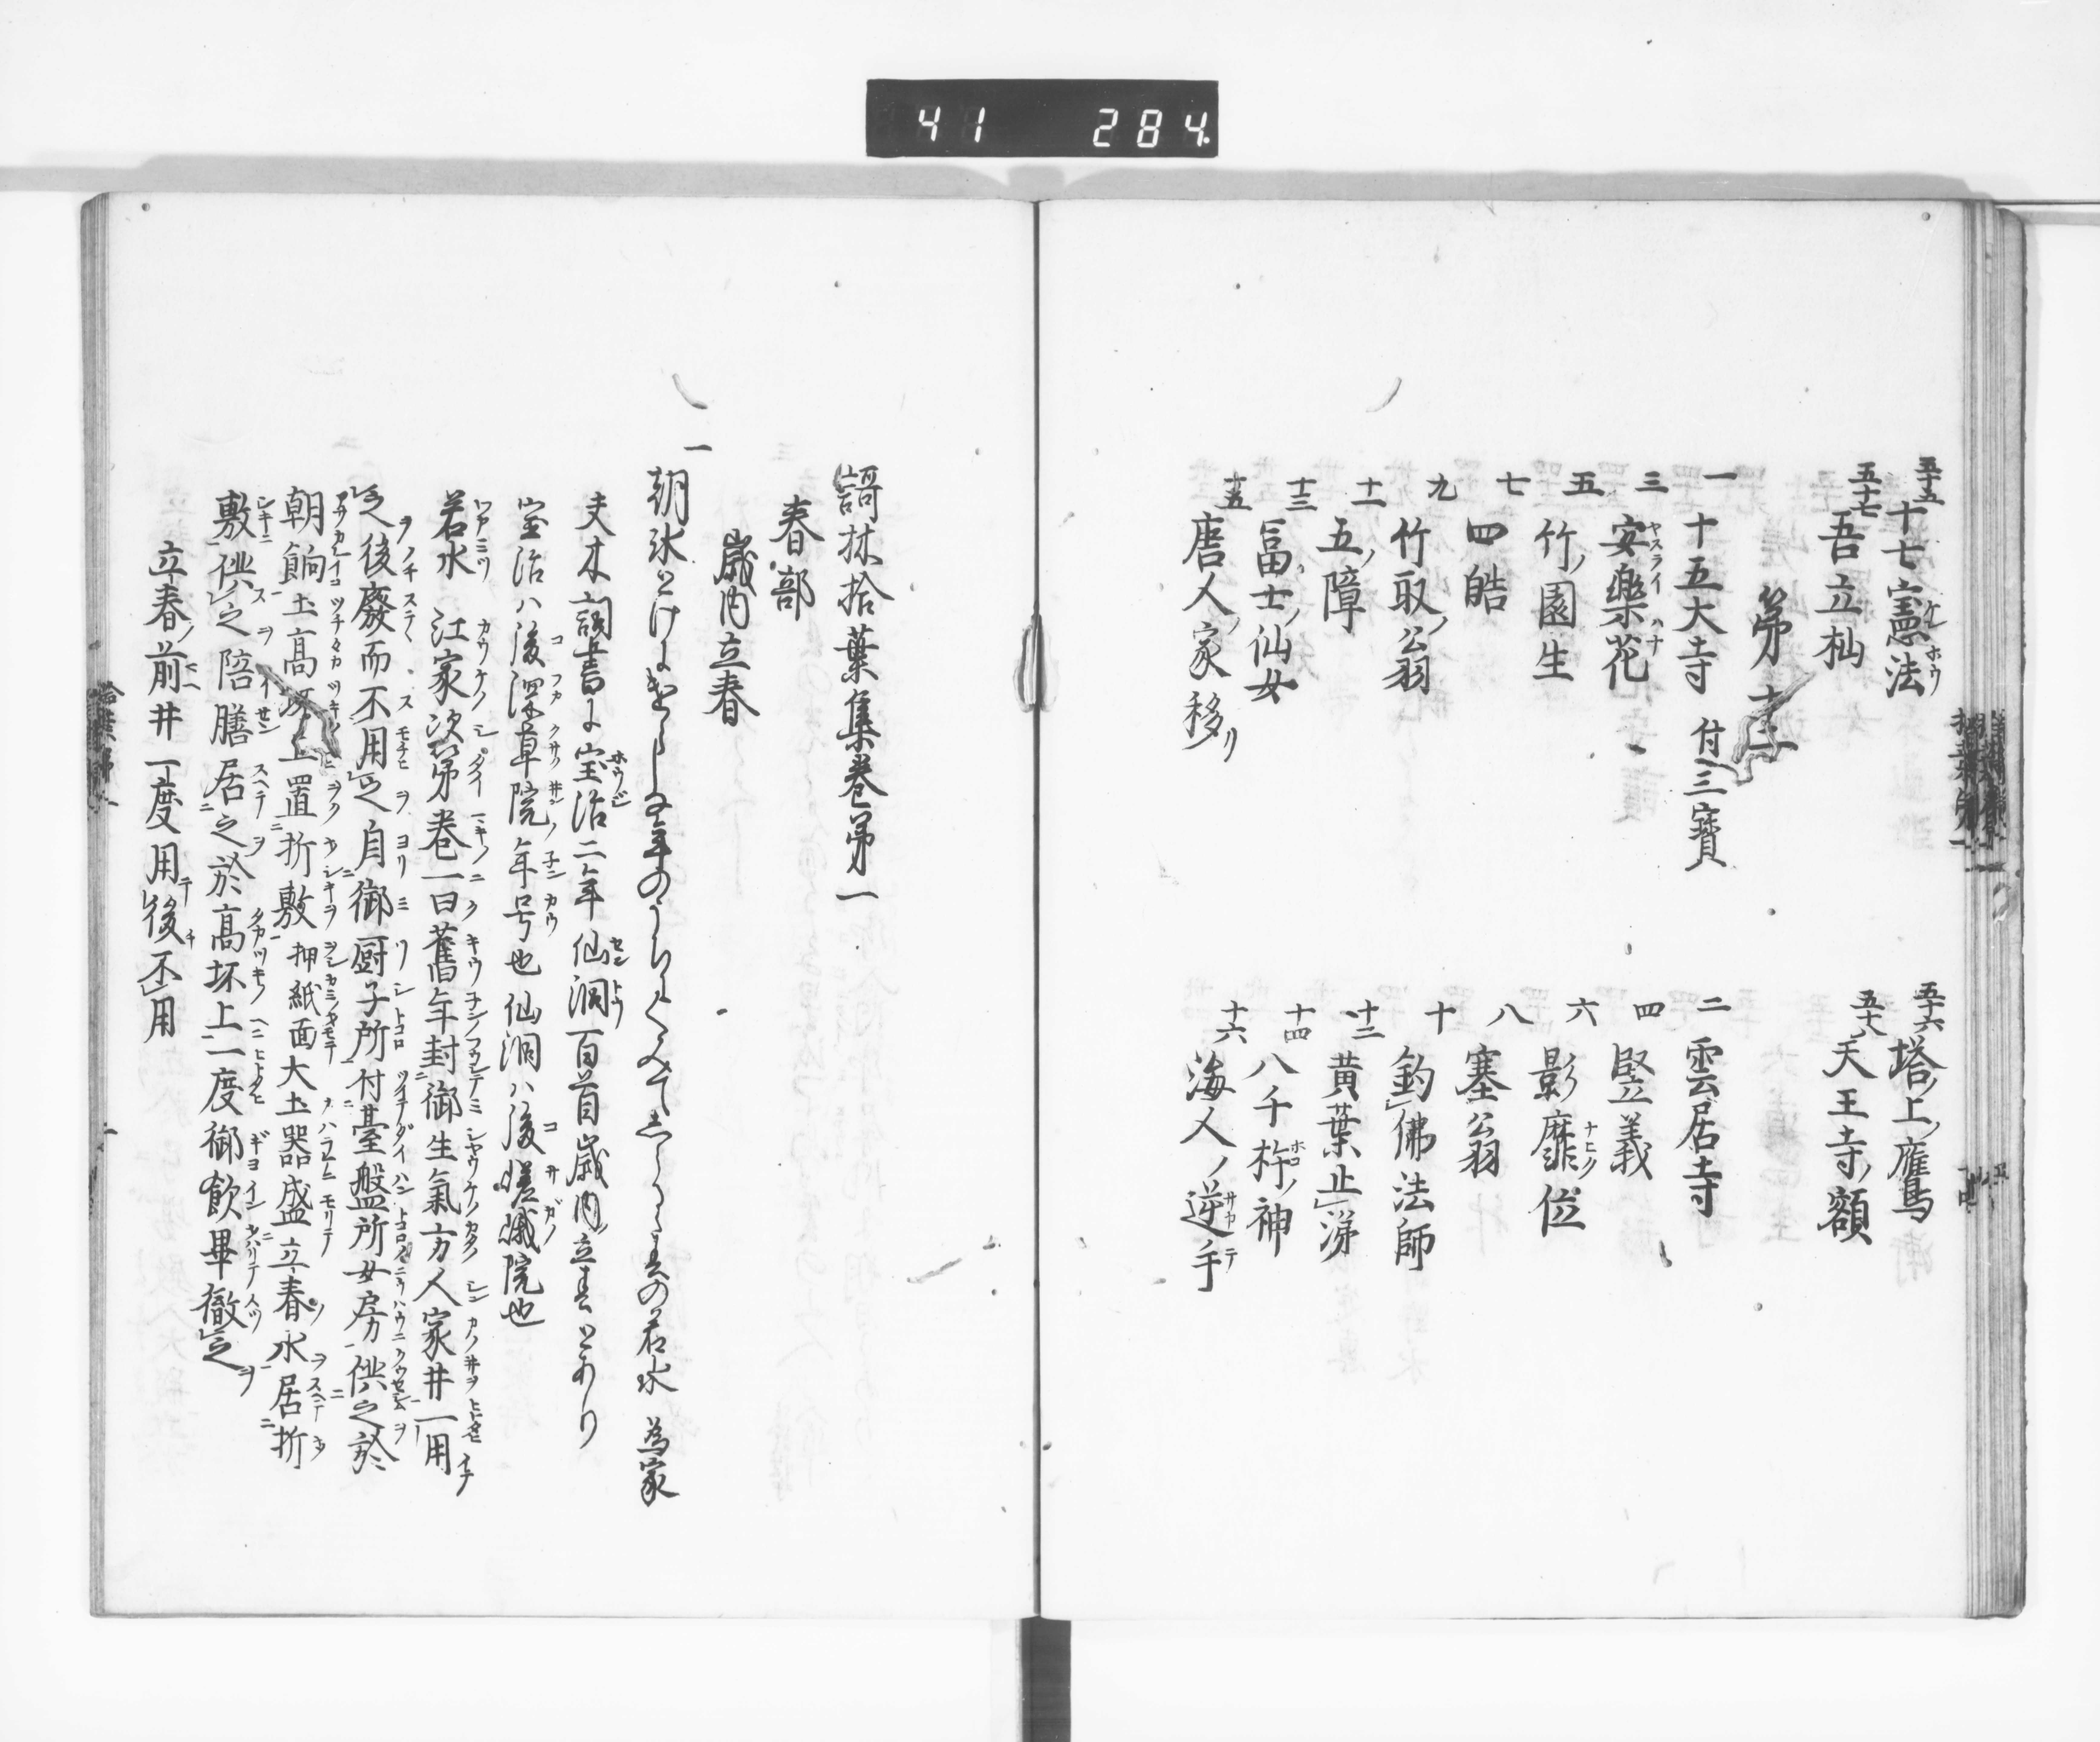 41 284
五十五 十七憲法
五十六 塔ノ上ノ雁鳥
五十七 吾立杣
五十八 天王寺ノ額
第十二
一 十五大寺 付三寶
二 雲居寺
三 安樂花
四 竪義
五 竹ノ園生
六 影靡位
七 四皓
八 塞翁
九 竹取ノ公翁
十 釣佛法師
十一 五ノ障
十二 黄葉止涕
十三 冨士ノ仙女
十四 八千杵ノ神
十五 唐人ノ家移リ
十六 海人ノ逆手
謌林拾葉集巻第一
春部
歳内立春
一
朝氷とけにけらしな年のうちにくみてしらるゝ春の若水 為家
夫木詞書に宝治二年仙洞百首歳内立春とあり
宝治ハ後深草院ノ年号也仙洞ハ後嵯峨院也
若水 江家次第巻一曰舊年封御生氣方人家井一用
之後廢而不用之自御厨子所付臺盤所女房供之於
朝餉土高坏上置折敷押紙面大土器盛立春水居折
敷供之陪膳居之於高坏上一度御飲畢徹之
立春ノ前井一度用後不用